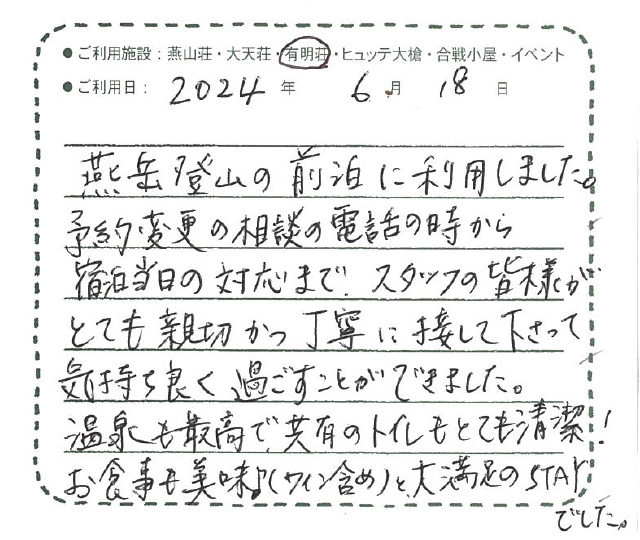 ● ご利用施設：燕山荘・大天荘・有明荘・ヒュッテ大槍・合戦小屋・イベント
● ご利用日： 2024 年 6 月 18 日
燕岳登山の前泊に利用しました。
予約変更の相談の電話の時から
宿泊当日の対応まで、スタッフの皆様が
とても親切かつ丁寧に接して下さって
気持ち良く過ごすことができました。
温泉も最高で、共有のトイレもとても清潔！
お食事も美味♪(ワイン含め)と、大満足のSTAY
でした。